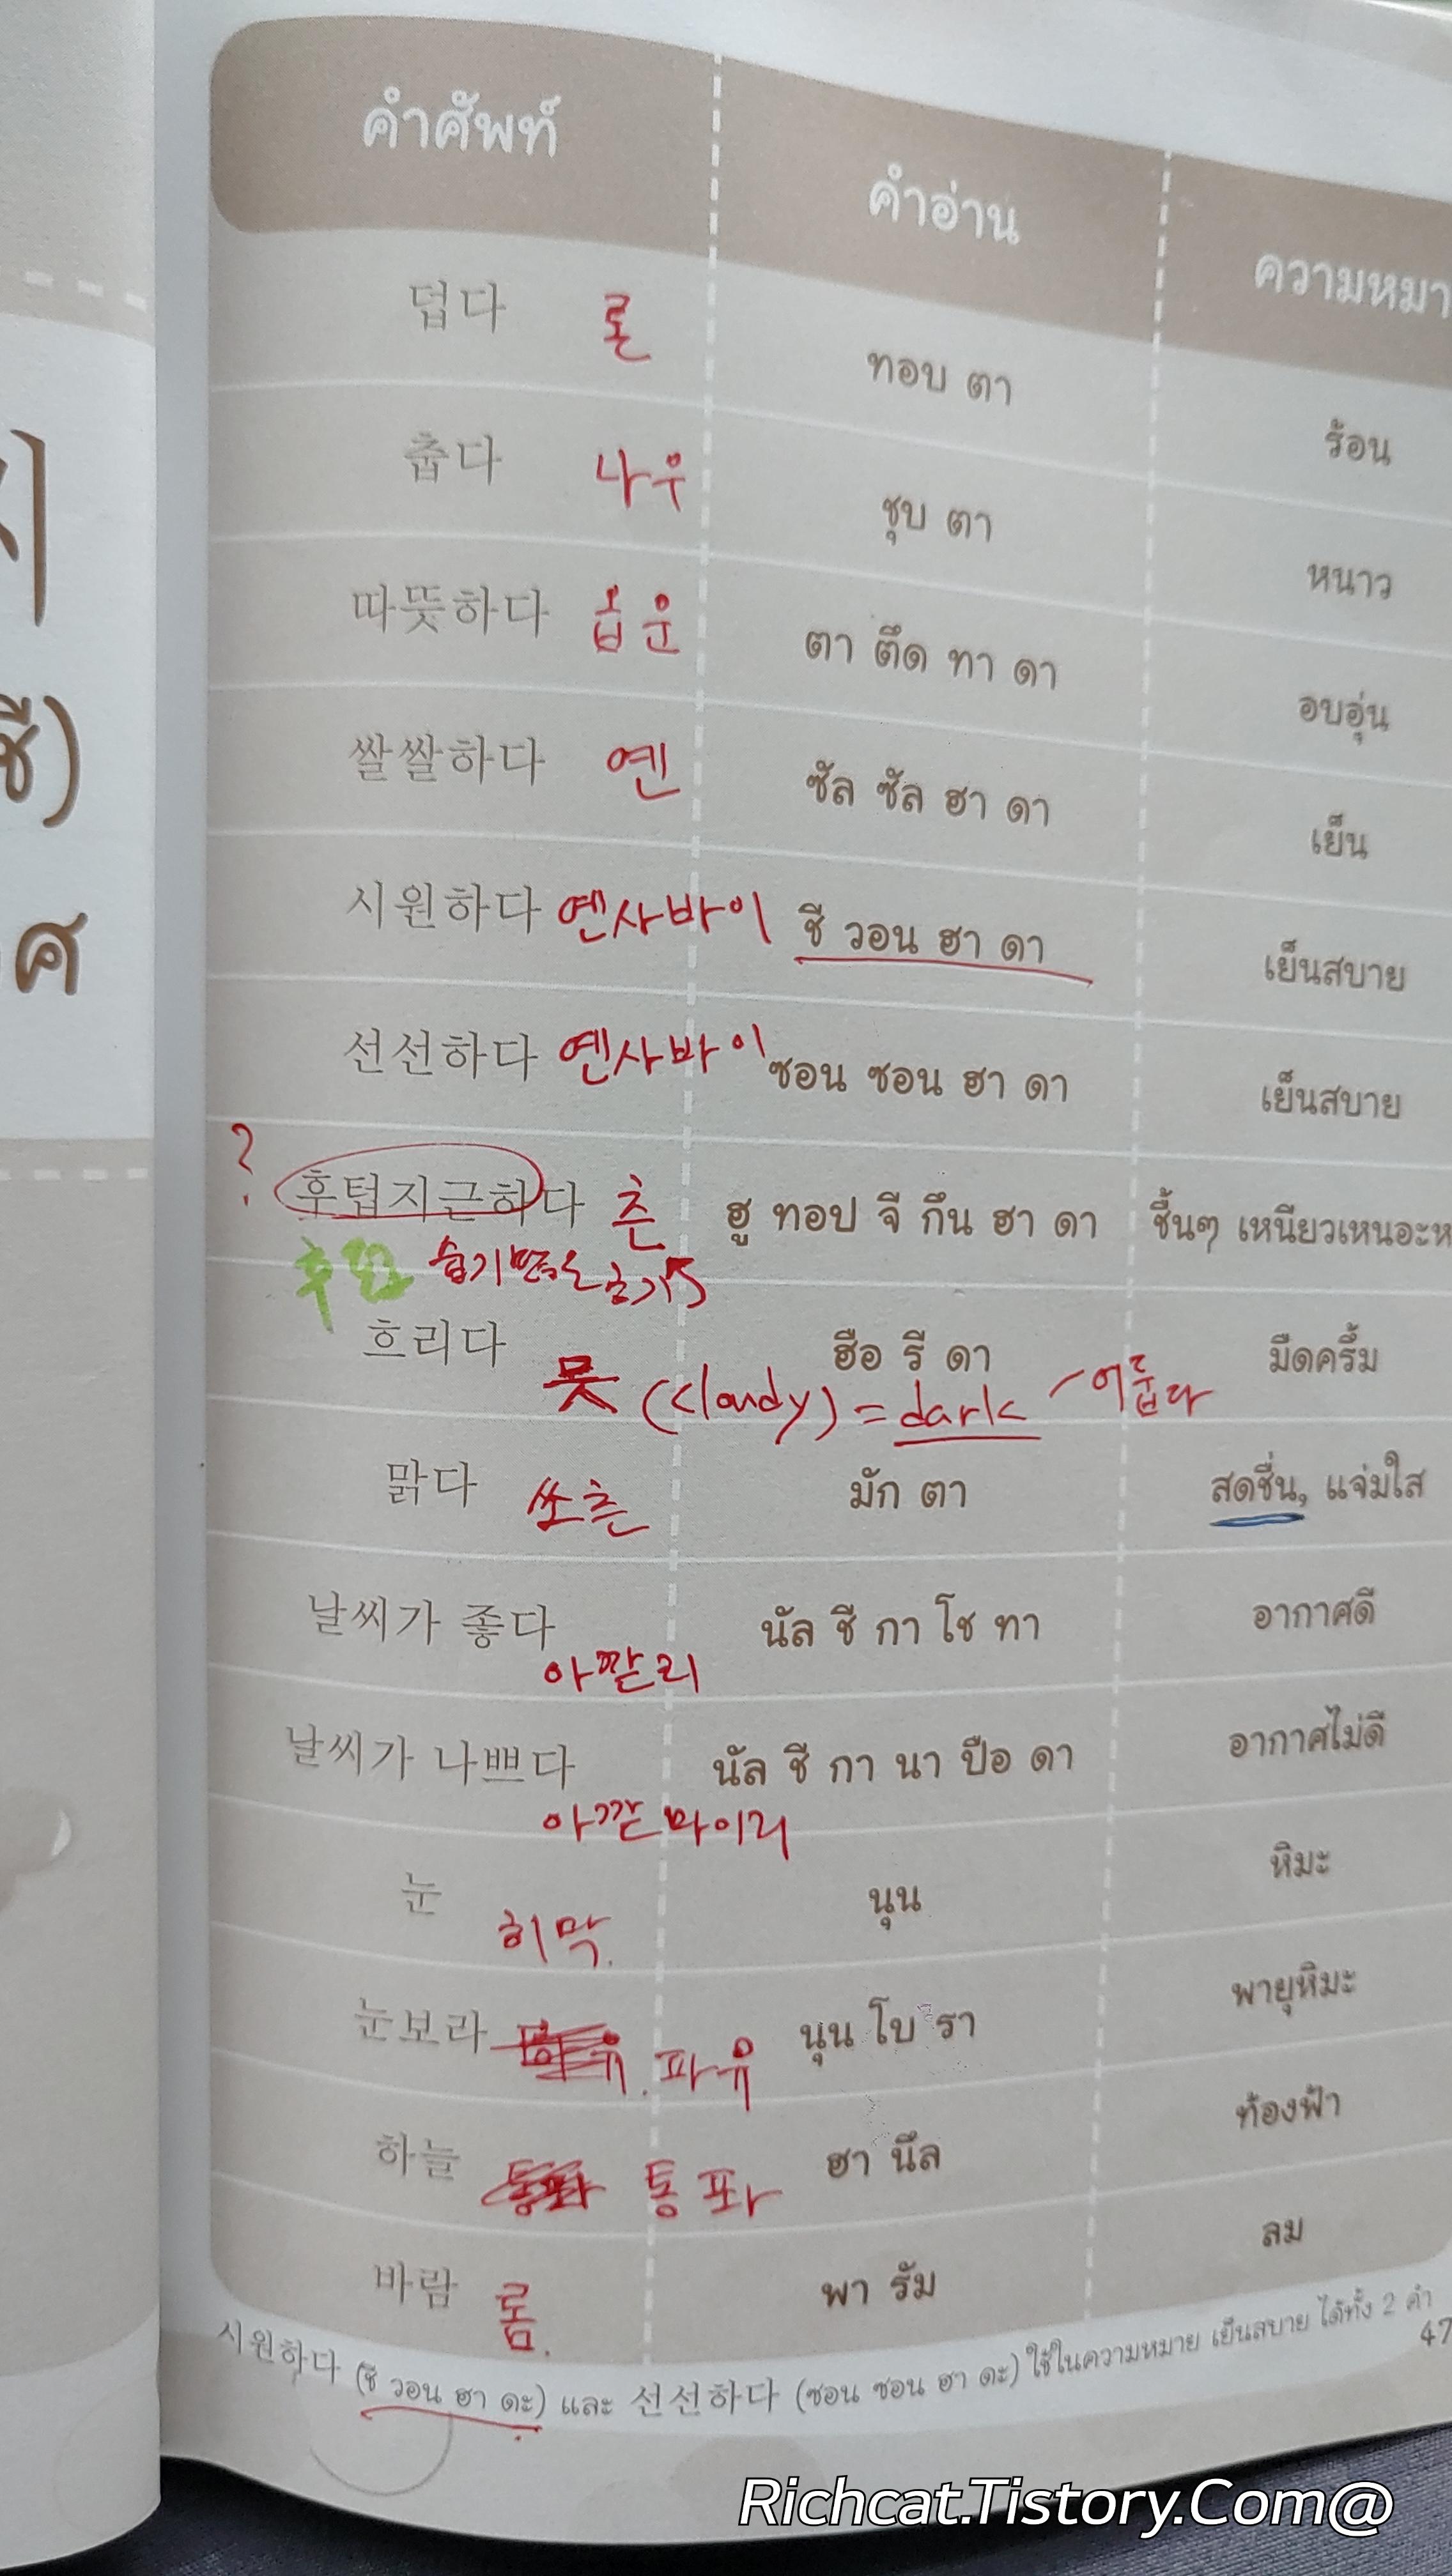 คำศัพท์ คำอ่าน ความหมา
덥다 론 ทอบ ตา ร้อน
춥다 나우 ชุบ ตา หนาว
따뜻하다 옵운 ตา ตึด ทา ดา อบอุ่น
쌀쌀하다 옌 ซัล ซัล ฮา ดา เย็น
시원하다 옌사바이 ชี วอน ฮา ดา เย็นสบาย
선선하다 옌사바이 ซอน ซอน ฮา ดา เย็นสบาย
? 후텁지근하다 츤 ฮู ทอป จี กึน ฮา ดา ชื้นๆ เหนียวเหนอะห
흐리다 ฮือ รี ดา มืดครึ้ม
믓 (cloudy) = dark 어둡다
맑다 쏘츤 มัก ตา สดชื่น, แจ่มใส
날씨가 좋다 นัล ชี กา โช ทา อากาศดี
아깓리
날씨가 나쁘다 นัล ชี กา นา ปือ ดา อากาศไม่ดี
아깓마이리
눈 นุน หิมะ
히막.
눈보라 파유 นุน โบ รา พายุหิมะ
하늘 통퐈 ฮา นึล ท้องฟ้า
바람 롬. พา รัม ลม
시원하다 (ชี วอน ฮา ดะ) และ 선선하다 (ซอน ซอน ฮา ดะ) ใช้ในความหมาย เย็นสบาย ได้ทั้ง 2 คำ
47
ชี)
ศ
Richcat.Tistory.Com@